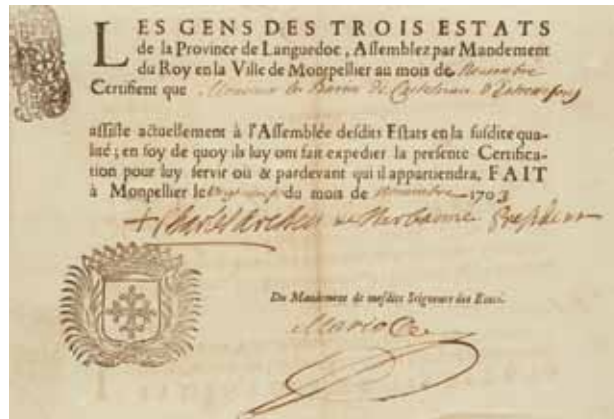 LES GENS DES TROIS ESTATS
de la Province de Languedoc, Assemblez par Mandement
du Roy en la Ville de Montpellier au mois de Nouembre
Certifient que Monsieur le Baron de Castelnau d'Estretefons
assiste actuellement à l'Assemblée desdits Estats en la susdite qua-
lité ; en foy de quoy ils luy ont fait expedier la presente Certifica-
tion pour luy servir où & pardevant qui il appartiendra, FAIT
à Monpellier le du mois de Nouembre 1703
+ Charles Arches de Narbonne President
Du Mandement de mesdits Seigneurs des Estats.
Mariotte